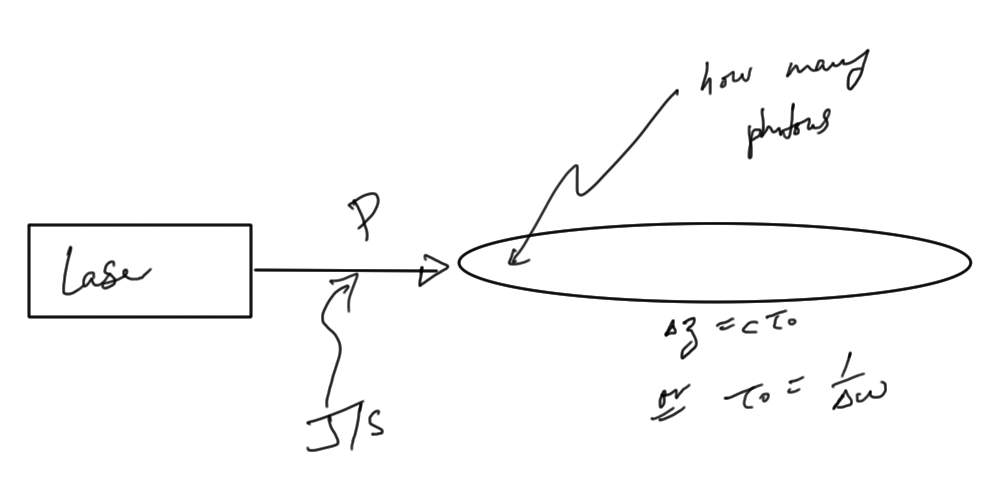 how many
photons
P
Laser
Δz = cτ₀
or τ₀ = 1/Δω
J/s